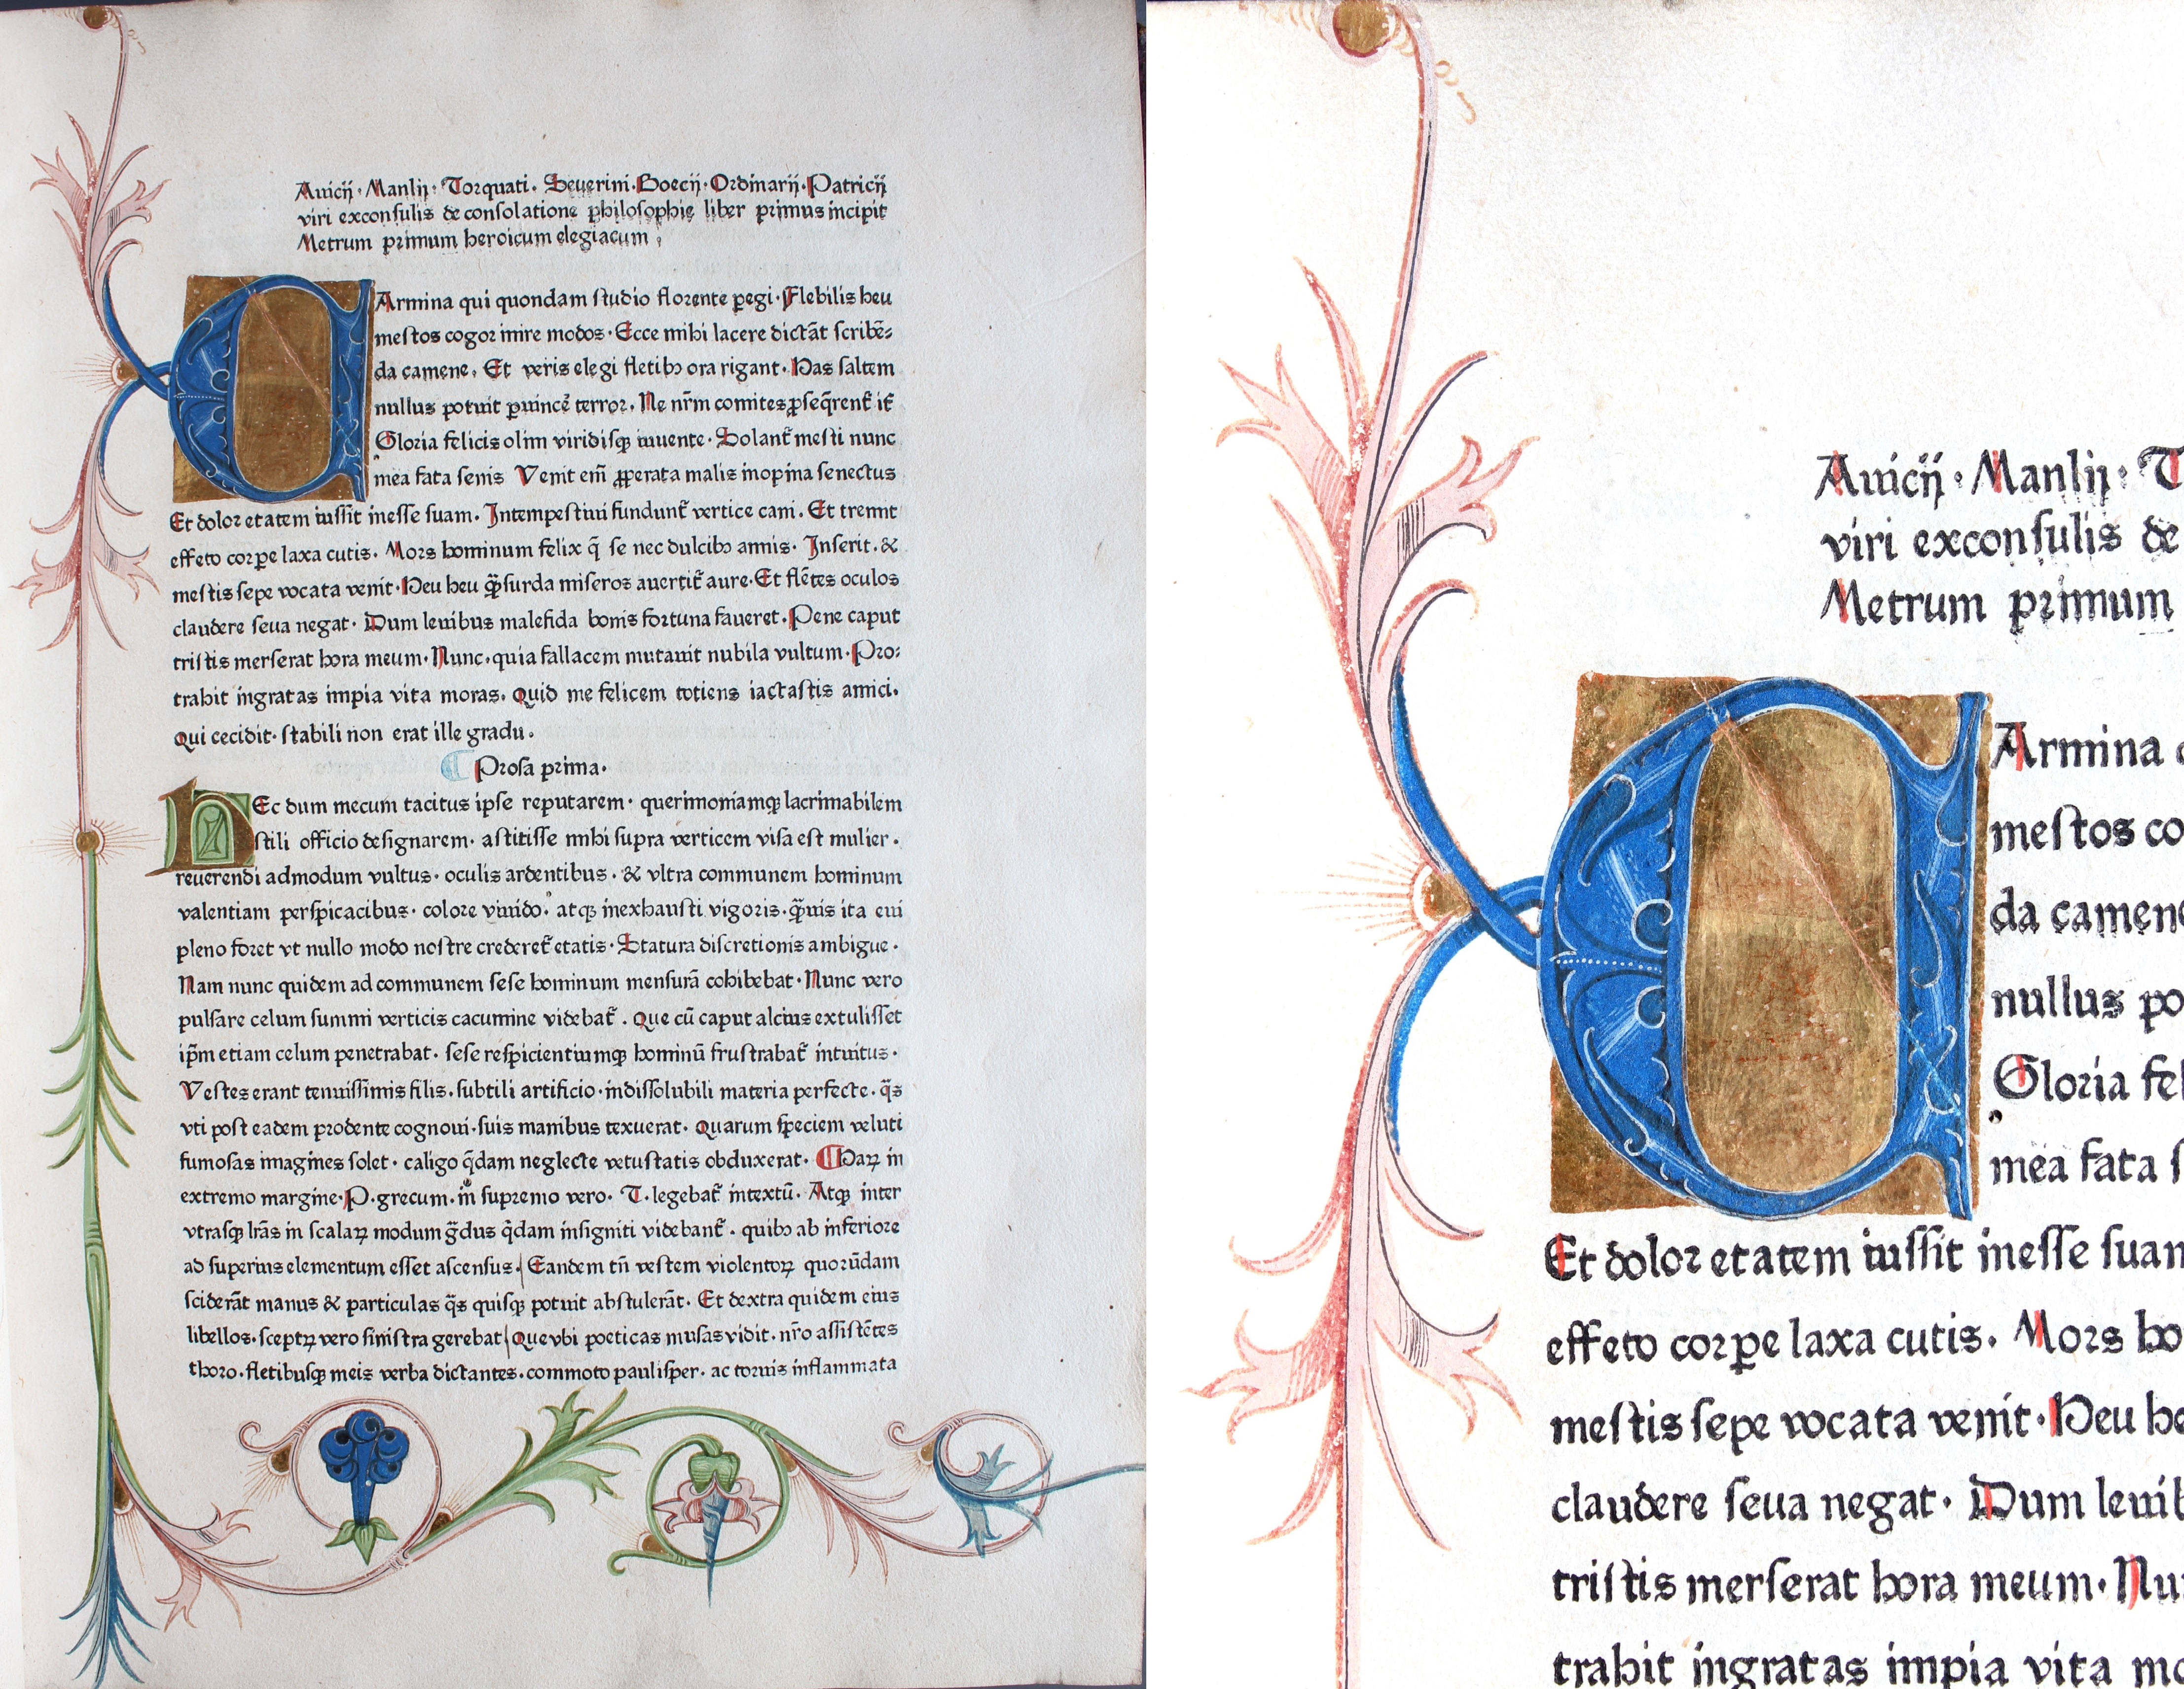 Auicij · Manlij · Torquati · Seuerini · Boecij · Ordinarij · Patricij
viri exconsulis de consolatione philosophie liber primus incipit
Metrum primum heroicum elegiacum ,
CArmina qui quondam studio florente pegi · Flebilis heu
mestos cogor inire modos · Ecce mihi lacere dictāt scribē⸗
da camene. Et veris elegi fletibꝫ ora rigant. Has saltem
nullus potuit ꝑuincẽ terror. Ne nr̃m comites ꝓseq̄rent̃ it̃
Gloria felicis olim viridisqꝫ iuuente · Solant̃ mesti nunc
mea fata senis Venit em̃ ꝓꝑerata malis inopina senectus
Et dolor etatem iussit inesse suam. Intempestiui fundunt̃ vertice cani. Et tremit
effeto corꝑe laxa cutis. Mors hominum felix q̄ se nec dulcibꝫ annis. Inserit. &
mestis sepe vocata venit · Heu heu q̄ꝫ surda miseros auertit̃ aure · Et flẽtes oculos
claudere seua negat · Dum leuibus malefida bonis fortuna faueret. Pene caput
tristis merserat hora meum · Nunc · quia fallacem mutauit nubila vultum · Pro⸗
trahit ingratas impia vita moras. Quid me felicem totiens iactastis amici.
Qui cecidit · stabili non erat ille gradu.
Prosa prima.
HEc dum mecum tacitus ipse reputarem · querimoniamqꝫ lacrimabilem
stili officio designarem · astitisse mihi supra verticem visa est mulier .
reuerendi admodum vultus · oculis ardentibus . & vltra communem hominum
valentiam perspicacibus · colore viuido · atqꝫ inexhausti vigoris · q̄ꝫuis ita eui
pleno foret vt nullo modo nostre crederet̃ etatis · Statura discretionis ambigue .
Nam nunc quidem ad communem sese hominum mensurā cohibebat · Nunc vero
pulsare celum summi verticis cacumine videbat̃ . Que cū caput alcius extulisset
ip̃m etiam celum penetrabat · sese respicientiumqꝫ hominū frustrabat̃ intuitus ·
Vestes erant tenuissimis filis · subtili artificio · indissolubili materia perfecte · q̄s
vti post eadem prodente cognoui · suis manibus texuerat. Quarum speciem veluti
fumosas imagines solet · caligo q̄dam neglecte vetustatis obduxerat · Haꝝ in
extremo margine · P · grecum · in supremo vero · T · legebat̃ intextū. Atqꝫ inter
vtrasqꝫ lr̃as in scalaꝝ modum g̃dus q̄dam insigniti videbant̃ . quibꝫ ab inferiore
ad superius elementum esset ascensus. Eandem tñ vestem violentoꝝ quorūdam
sciderāt manus & particulas q̄s quisqꝫ potuit abstulerāt. Et dextra quidem eius
libellos · sceptꝝ vero sinistra gerebat Que vbi poeticas musas vidit · nr̃o assistẽtes
thoro · fletibusqꝫ meis verba dictantes · commoto paulisper · ac toruis inflammata
Auicij · Manlij · T
viri exconsulis de
Metrum primum
Armina
mestos co
da camene
nullus po
Gloria fel
mea fata s
Et dolor etatem iussit inesse suam
effeto corꝑe laxa cutis. Mors ho
mestis sepe vocata venit · Heu he
claudere seua negat · Dum leuib
tristis merserat hora meum · Nu
trahit ingratas impia vita mo